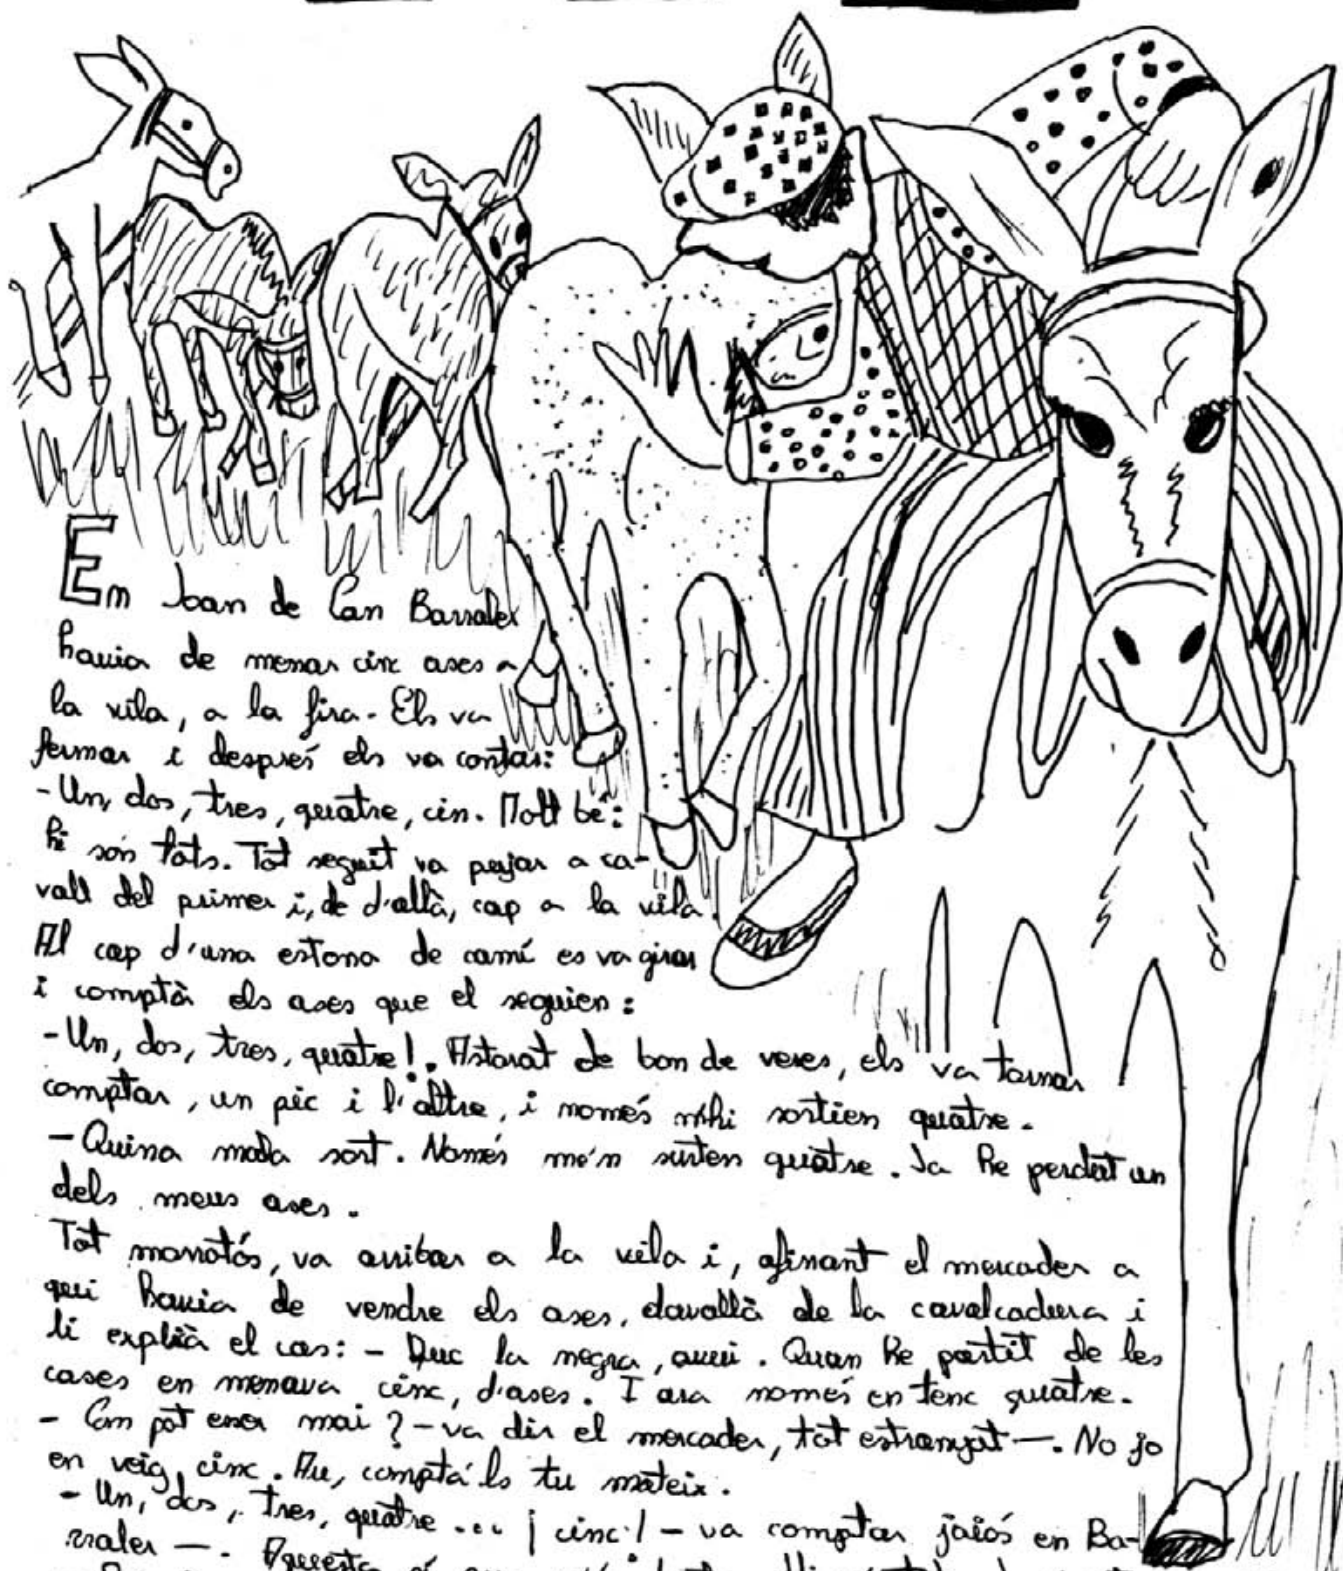 Em Joan de Can Barraler
havia de menar cinc ases a
la vila, a la fira. Els va
fermar i després els va contar:
-Un, dos, tres, quatre, cin. Molt bé:
hi són tots. Tot seguit va pujar a ca-
vall del primer i, de d'allà, cap a la vila.
Al cap d'una estona de camí es va girar
i comptà els ases que el seguien:
-Un, dos, tres, quatre!. Astorat de bon de veres, els va tornar
comptar, un pic i l'altre, i només n'hi sortien quatre.
- Quina mala sort. Només me'n surten quatre. Ja he perdut un
dels meus ases.
Tot moix, va arribar a la vila i, afinant el mercader a
qui havia de vendre els ases, davallà de la cavalcadura i
li explicà el cas: - Duc la negra, avui. Quan he partit de les
cases en menava cinc, d'ases. I ara només en tenc quatre.
- Com pot esser mai? - va dir el mercader, tot estranyat -. No jo
en veig cinc. Au, compta'ls tu mateix.
- Un, dos, tres, quatre ... ¡ cinc! - va comptar joiós en Ba-
rraler -. Aquesta